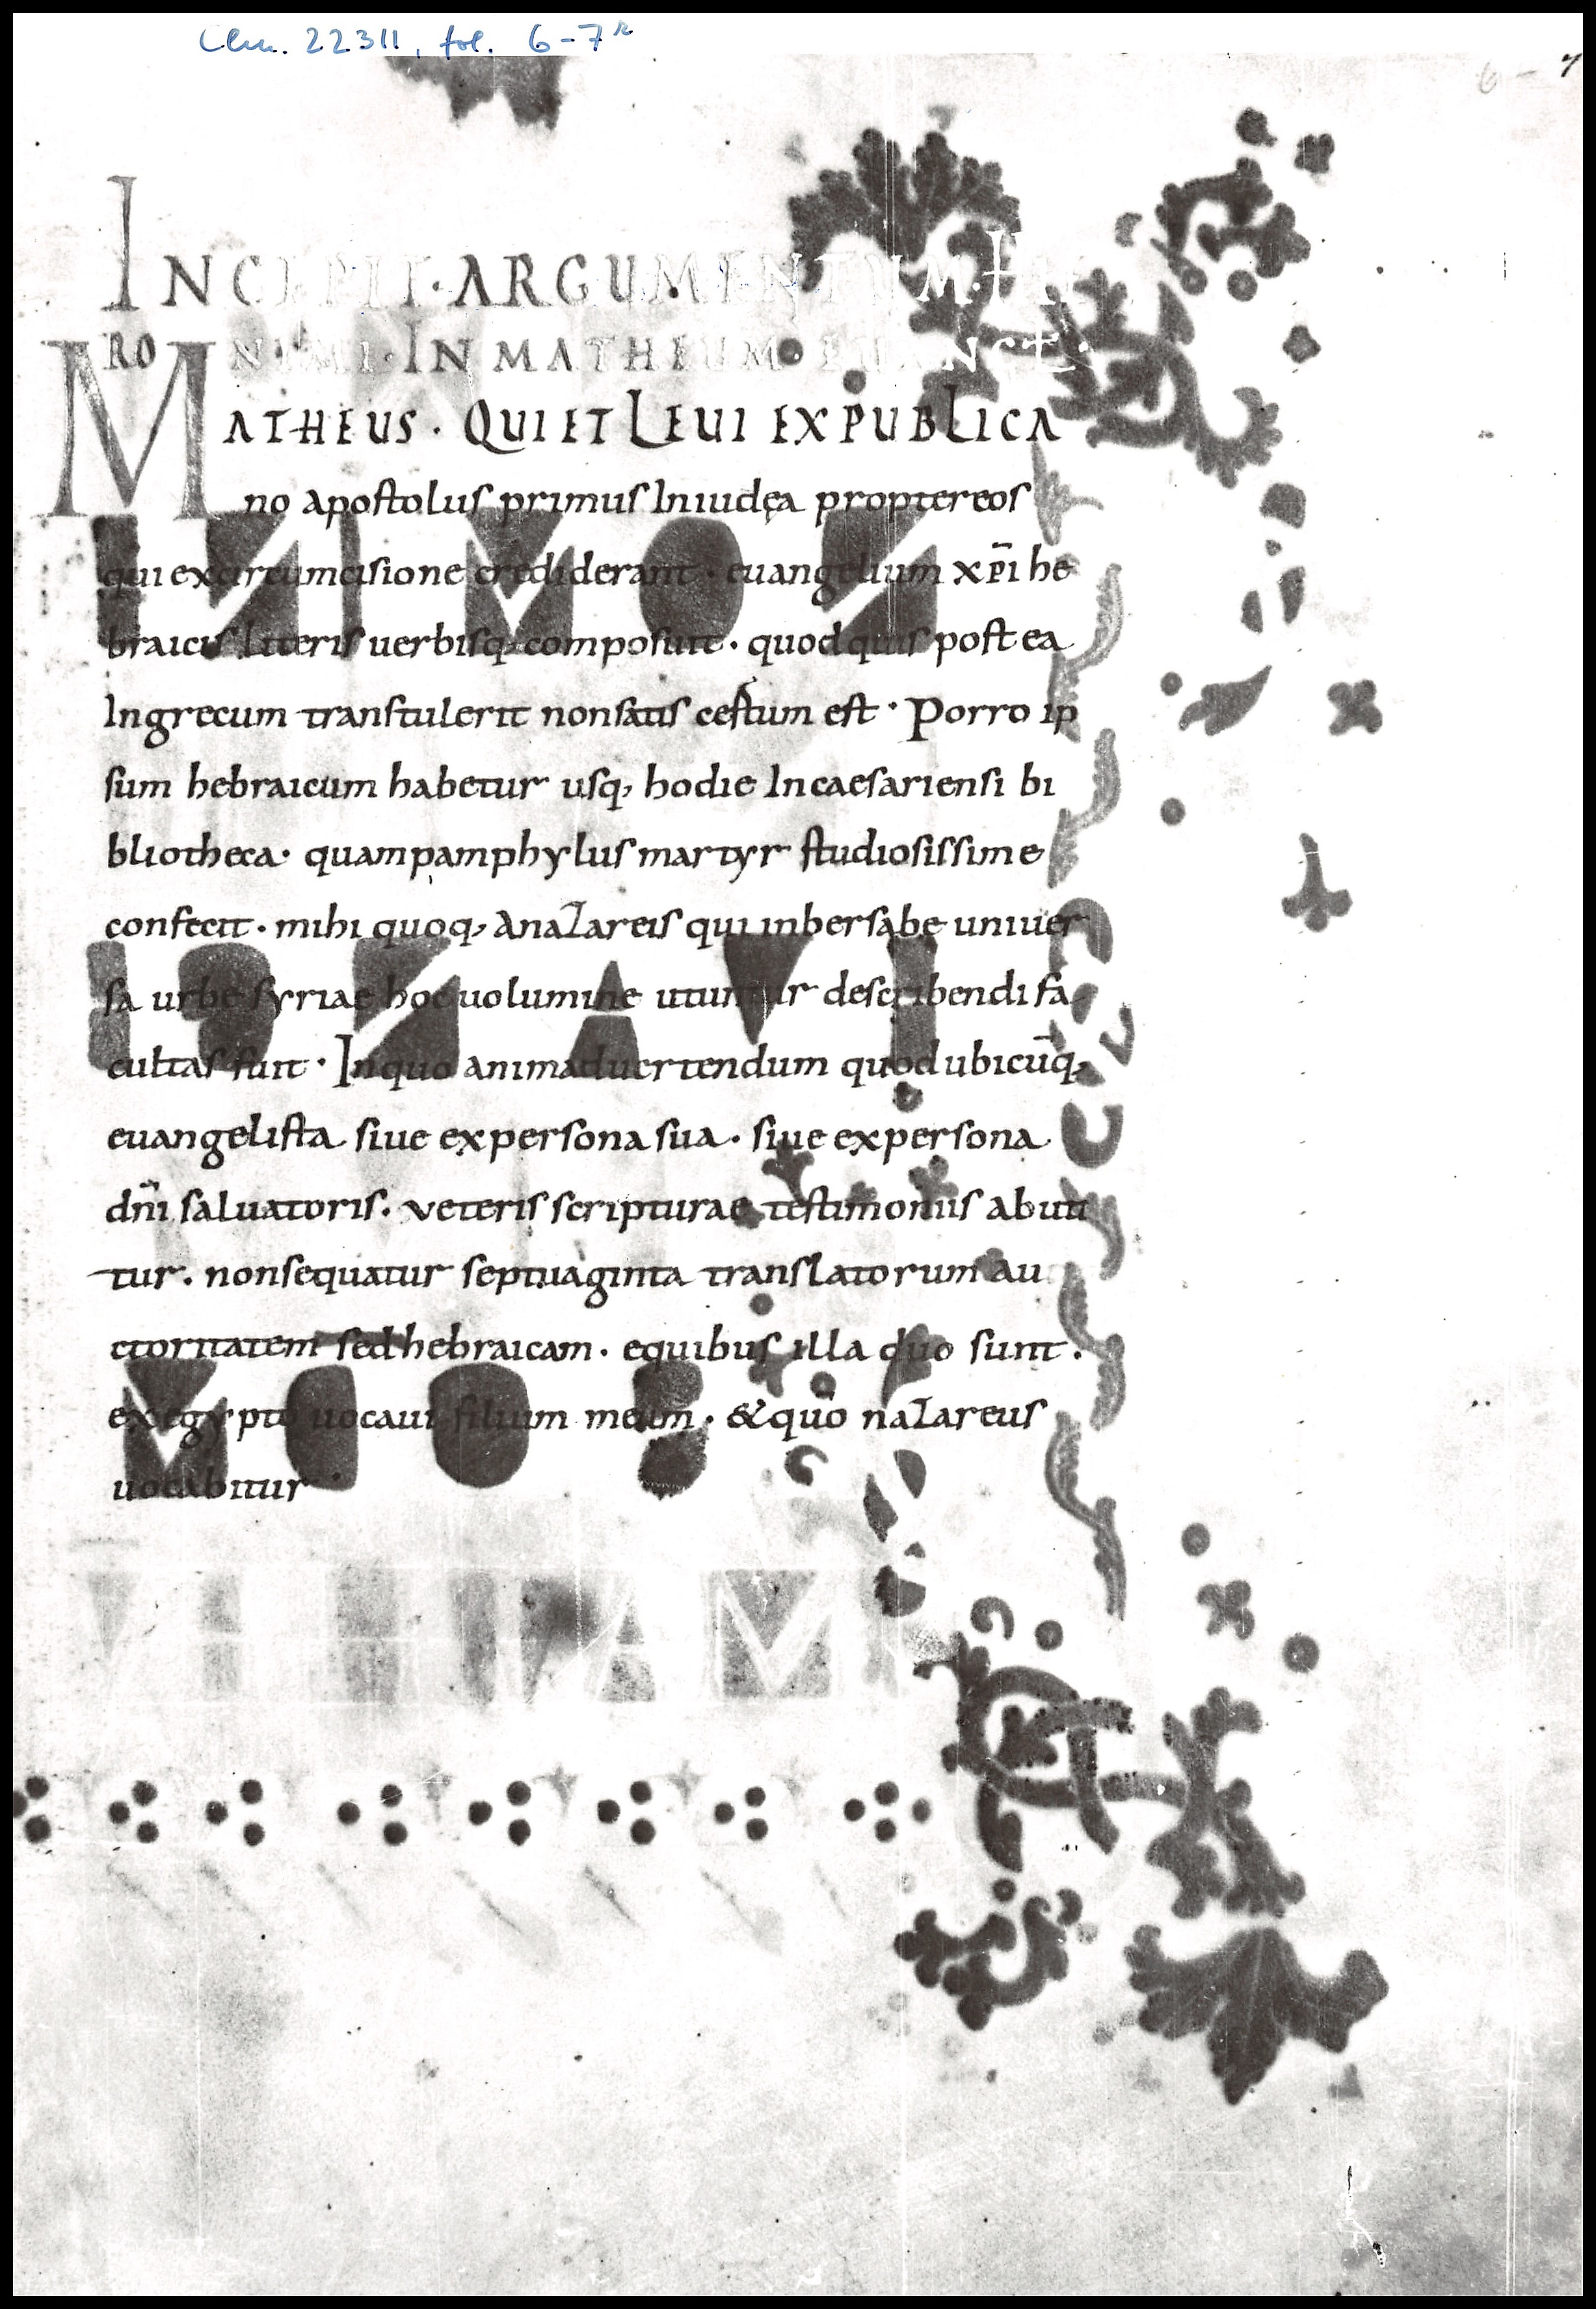 Clm. 22311, fol. 6-7r
6 - 7
INCIPIT·ARGUMENTUM·
RONIMI·IN MATHEUM
MATHEUS · QUI ET LEUI EX PUBLICA
no apostolus primus In iudęa propter eos
qui ex circumcisione crediderant · euangelium xp̄i he
braicis literis uerbisq; composuit · quod quis post ea
In grecum transtulerit non satis certum est · Porro ip
sum hebraicum habetur usq; hodie In caesariensi bi
bliotheca · quam pamphylus martyr studiosissime
confecit · mihi quoq; a naZareis qui in bersabe uniuer
sa urbe syriae hoc uolumine utuntur describendi fa
cultas fuit · In quo animaduertendum quod ubicūq;
euangelista siue ex persona sua · siue ex persona
dn̄i saluatoris · veteris scripturae testimoniis abuti
tur · non sequatur septuaginta translatorum au
ctoritatem sed hebraicam · e quibus illa duo sunt ·
ex egypto uocaui filium meum · & quō naZareus
uocabitur ·